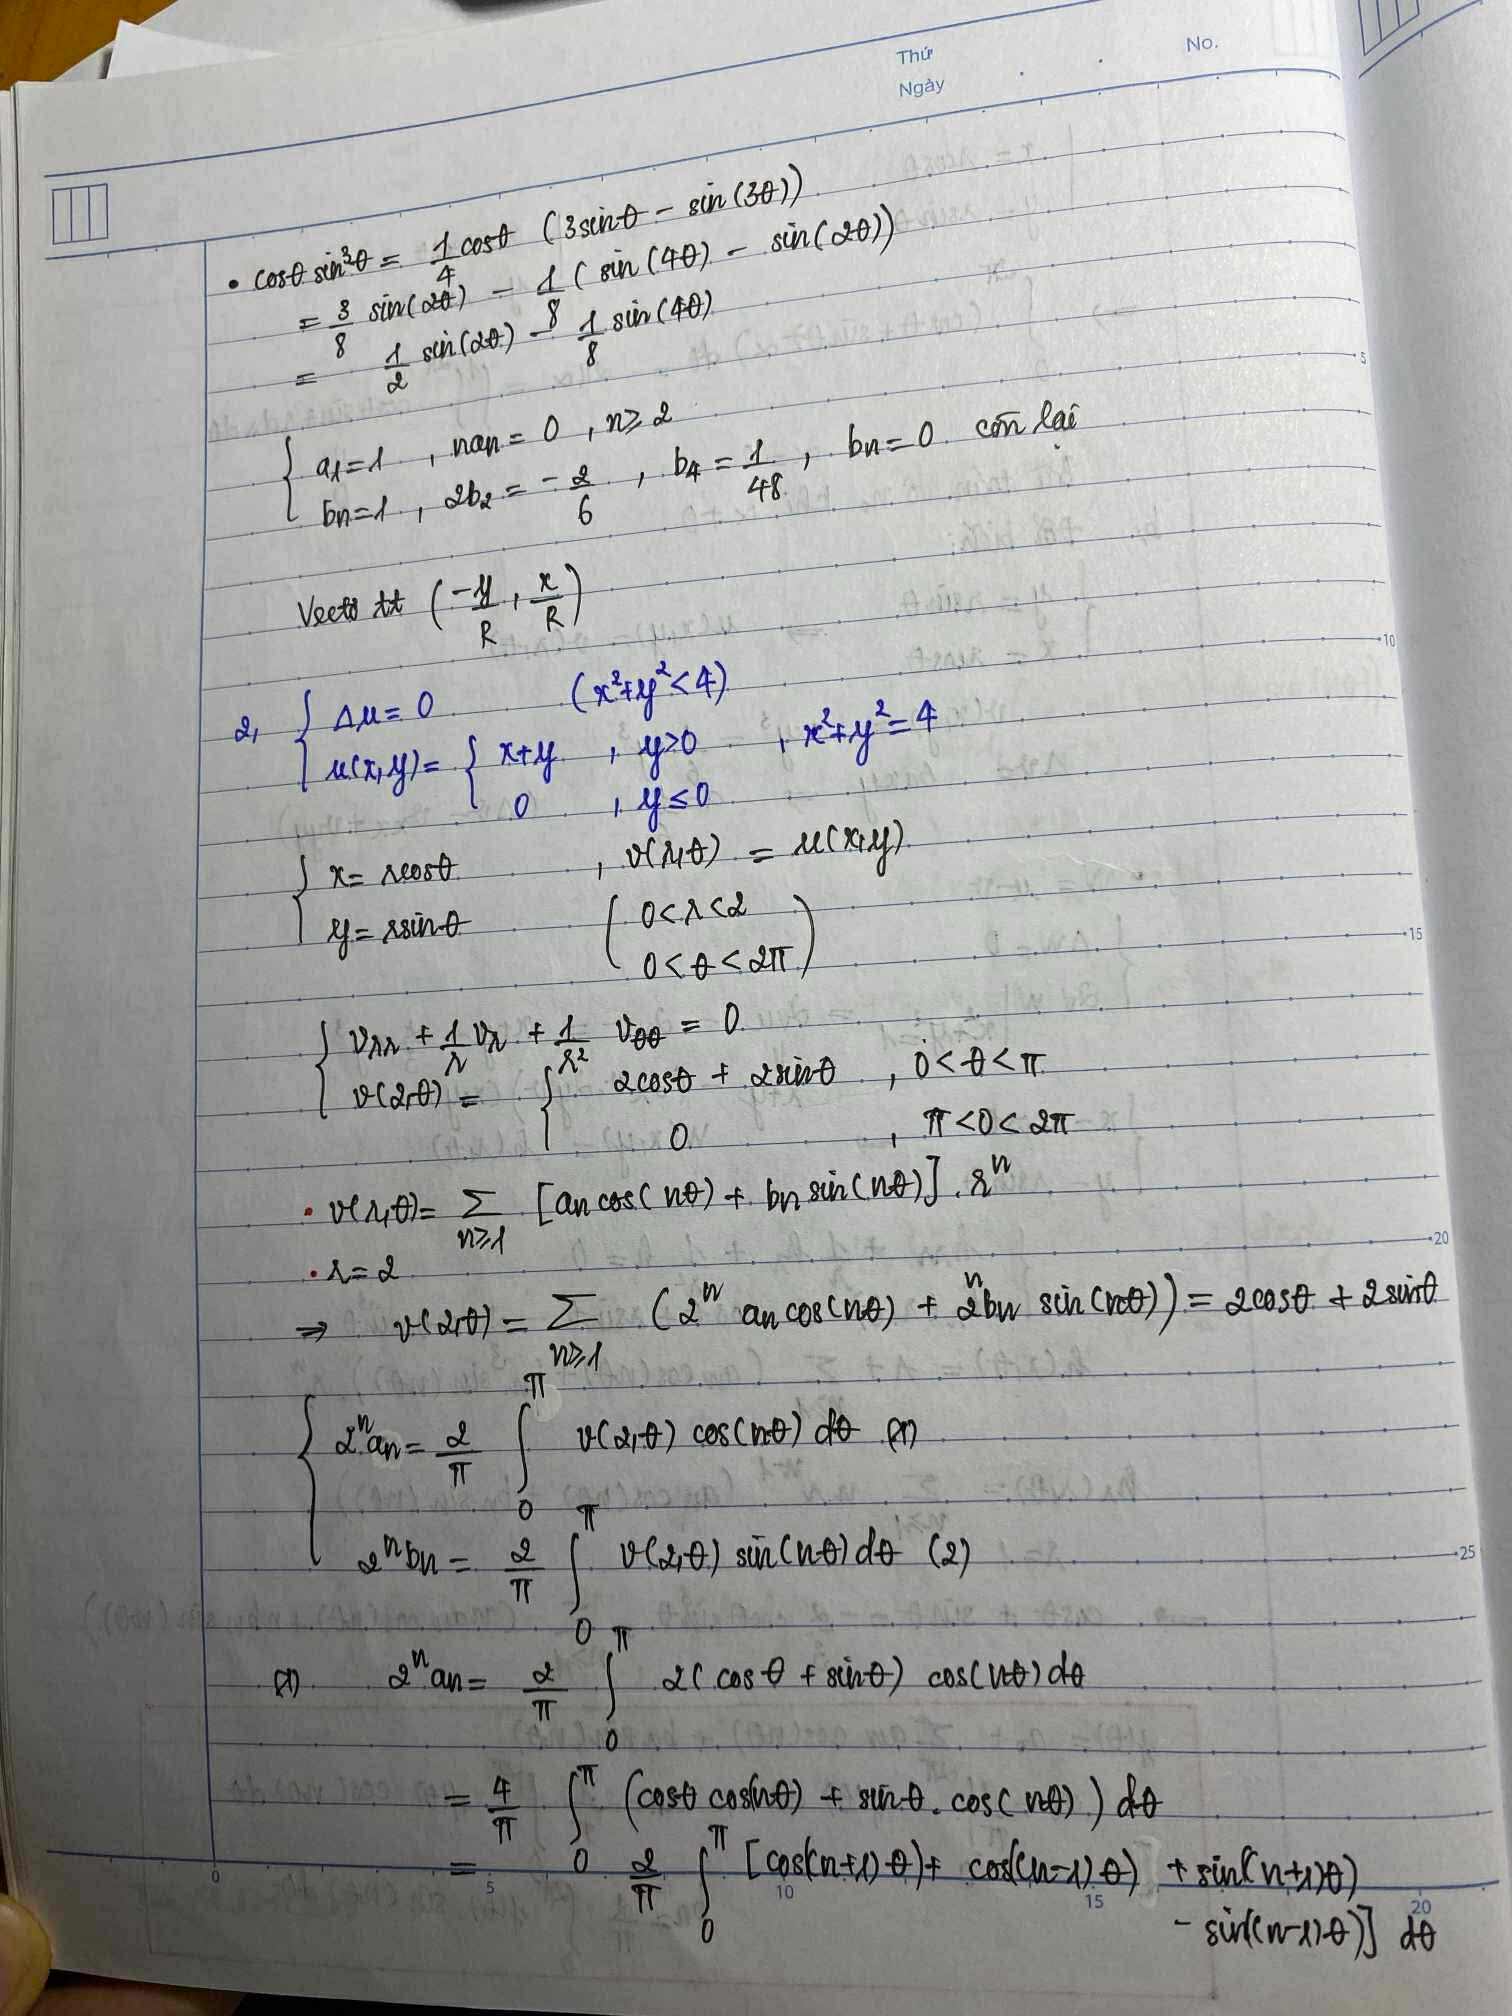 Thứ
Ngày
No.
• cosθ sin³θ = 1/4 cosθ (3sinθ - sin(3θ))
= 3/8 sin(2θ) - 1/8 (sin(4θ) - sin(2θ))
= 1/2 sin(2θ) - 1/8 sin(4θ)
{ a₁ = 1 , naₙ = 0 , n ≥ 2
bₙ = 1 , 2b₂ = -2/6 , b₄ = 1/48 , bₙ = 0 còn lại
Vectơ tt (-y/R , x/R)
2, { Δu = 0 (x²+y² < 4)
u(x,y) = { x+y , y>0 , x²+y² = 4
0 , y ≤ 0
{ x = rcosθ , v(r,θ) = u(x,y)
y = rsinθ ( 0 < r < 2
0 < θ < 2π )
{ vrr + 1/r vr + 1/r² vθθ = 0
v(2,θ) = { 2cosθ + 2sinθ , 0 < θ < π
0 , π < θ < 2π
• v(r,θ) = Σ n≥1 [aₙ cos(nθ) + bₙ sin(nθ)] . rⁿ
• r = 2
⇒ v(2,θ) = Σ n≥1 (2ⁿ aₙ cos(nθ) + 2ⁿ bₙ sin(nθ)) = 2cosθ + 2sinθ
{ 2ⁿaₙ = 2/π ∫₀^π v(2,θ) cos(nθ) dθ (1)
2ⁿbₙ = 2/π ∫₀^π v(2,θ) sin(nθ) dθ (2)
(1) 2ⁿaₙ = 2/π ∫₀^π 2(cosθ + sinθ) cos(nθ) dθ
= 4/π ∫₀^π (cosθ cos(nθ) + sinθ . cos(nθ)) dθ
= 2/π ∫₀^π [cos(n+1)θ) + cos((n-1)θ) + sin((n+1)θ)
- sin((n-1)θ)] dθ
5
10
15
20
25
0
5
10
15
20